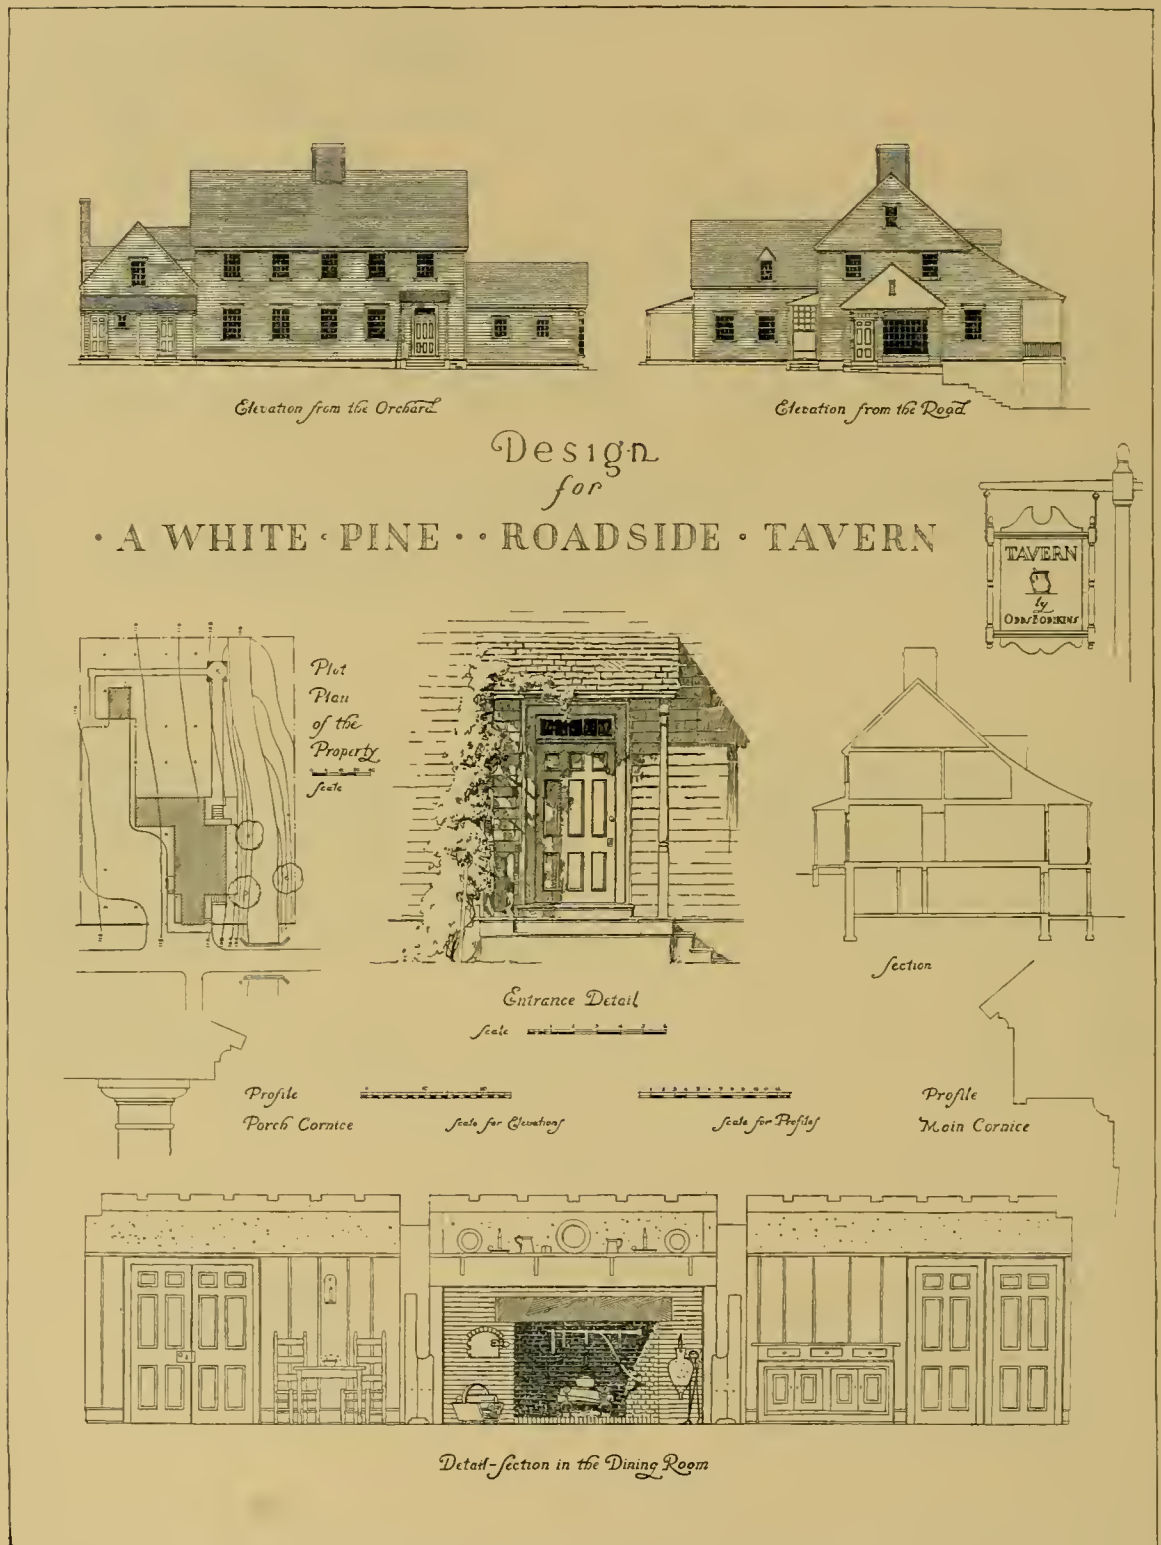 Elevation from the Orchard
Elevation from the Road
Design
for
· A WHITE · PINE · · ROADSIDE · TAVERN
TAVERN
by
ODDSBODIKINS
Plot
Plan
of the
Property
Scale
Section
Entrance Detail
Scale
Profile
Porch Cornice
Scale for Elevations
Scale for Profiles
Profile
Main Cornice
Detail-Section in the Dining Room